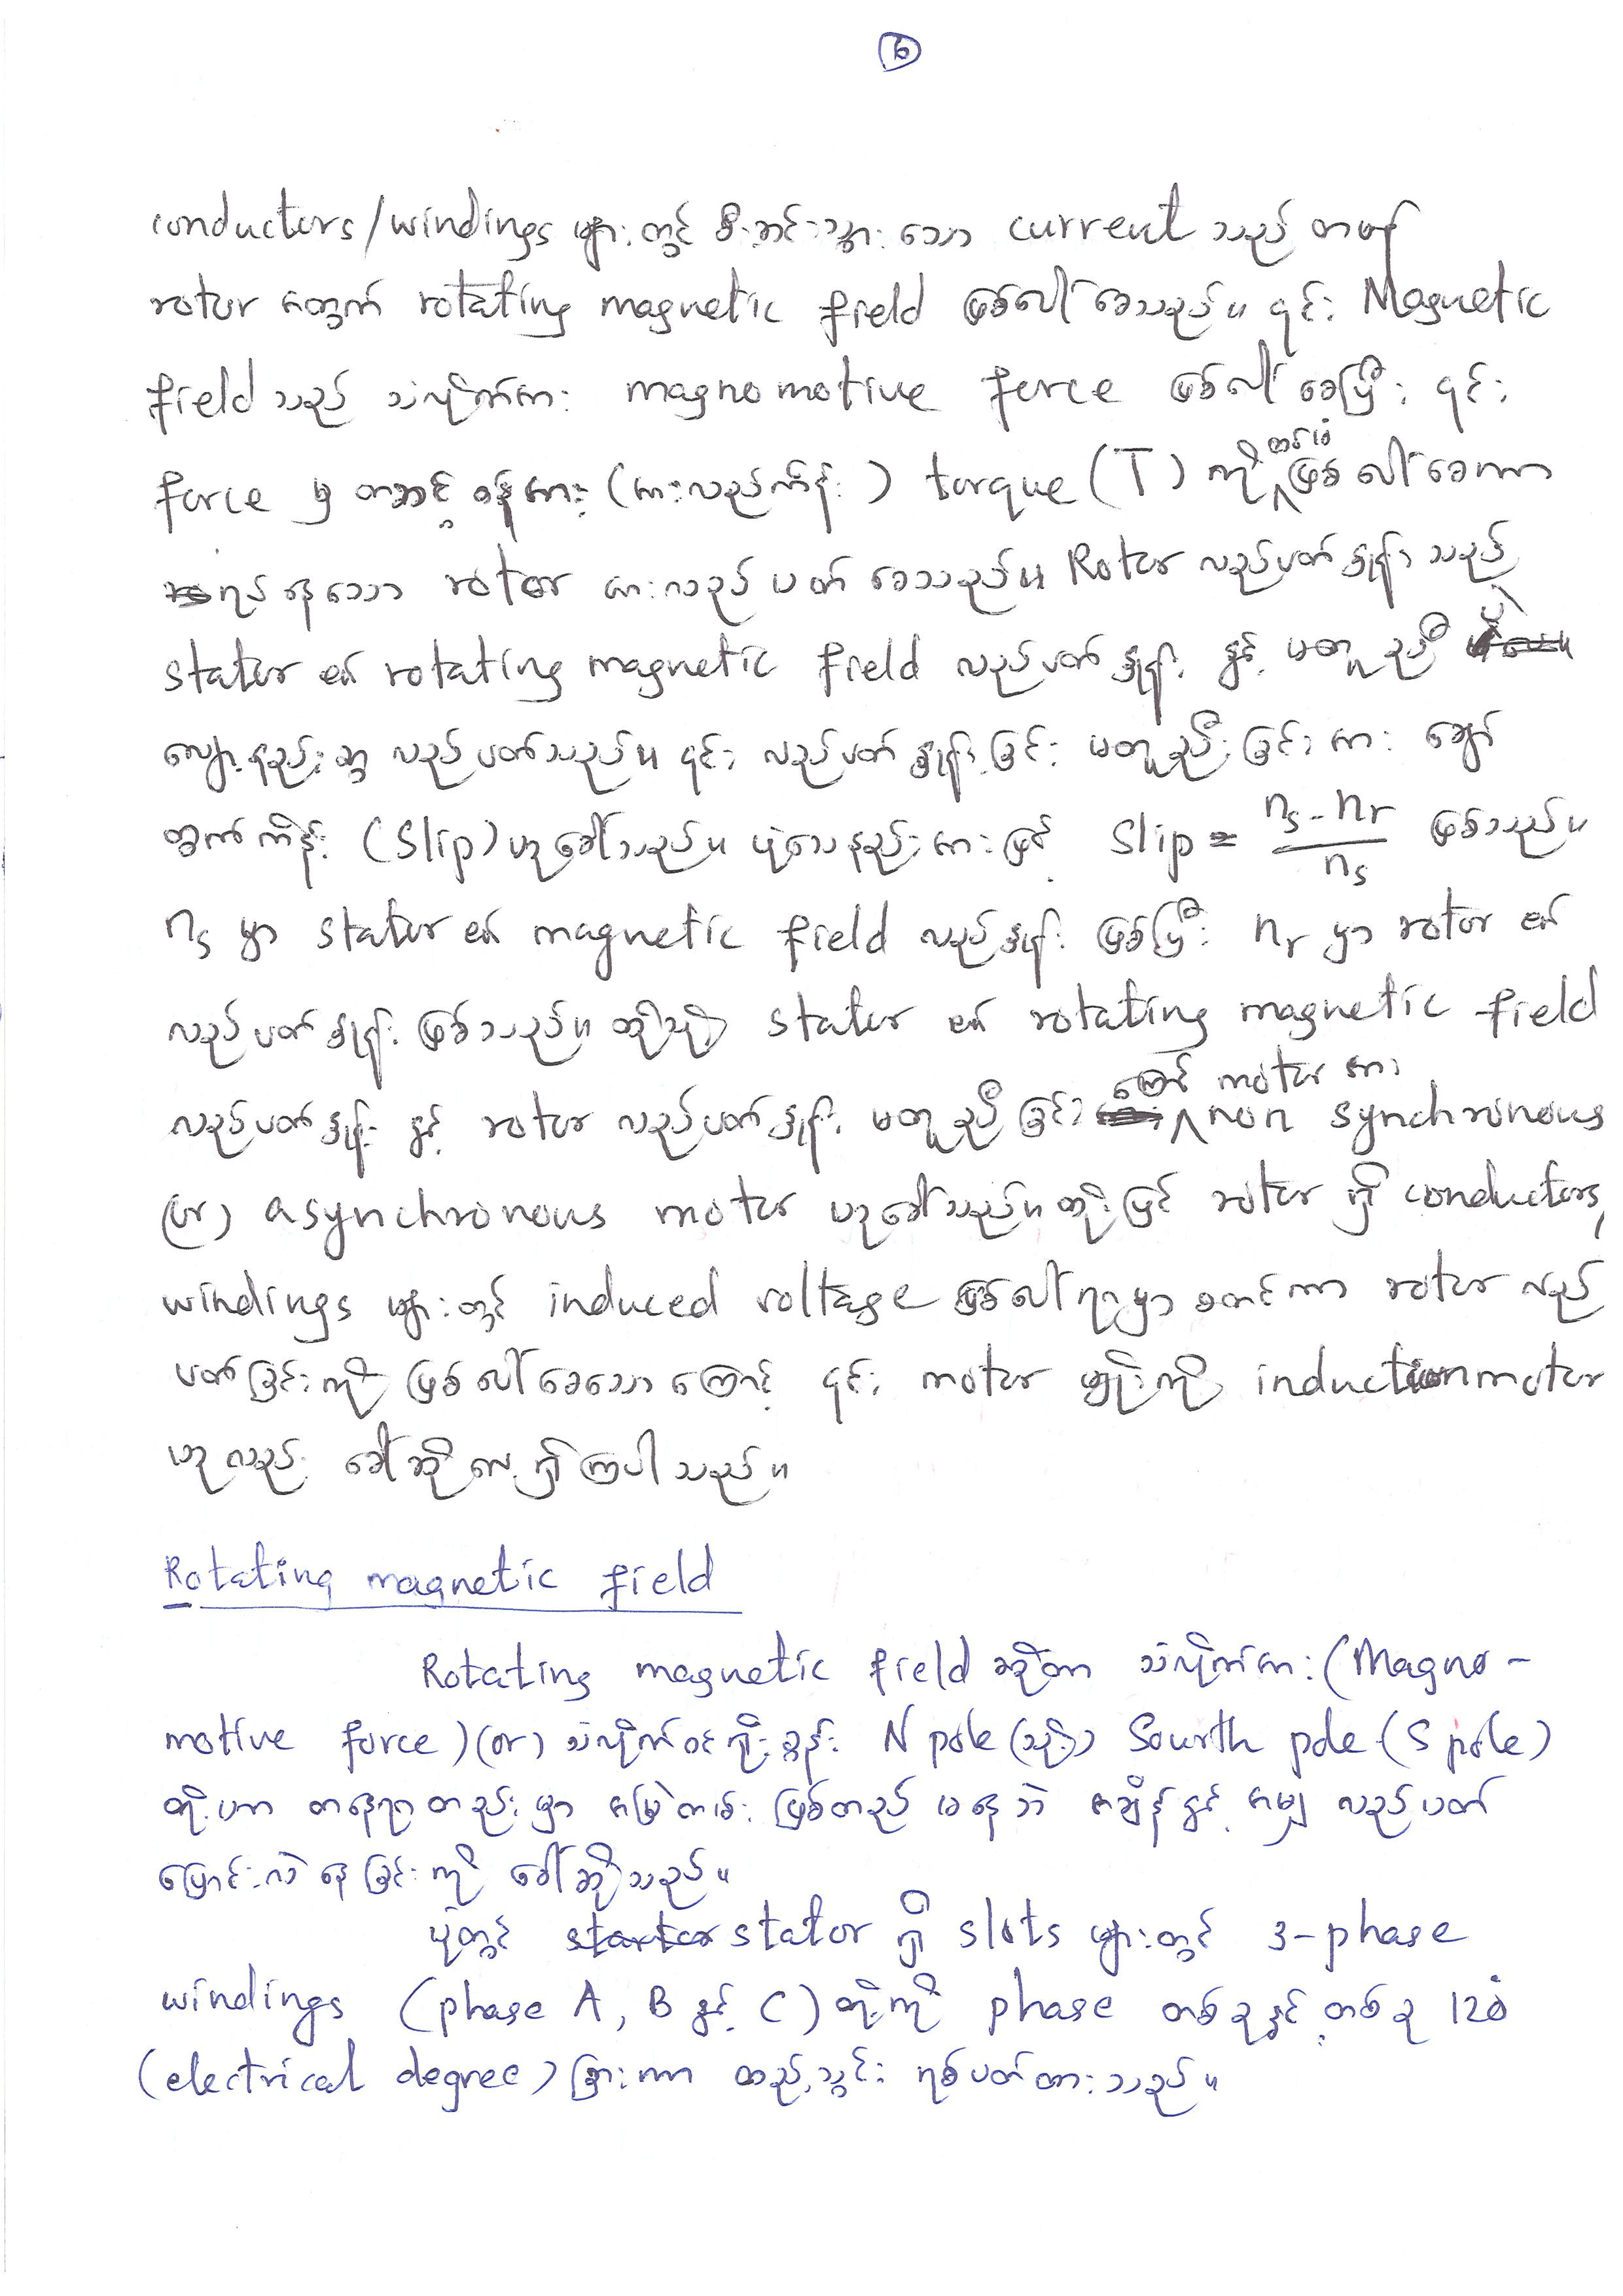 6
conductors/windings များတွင် စီးဆင်းသွားသော current သည် တဖန်
rotor အတွက် rotating magnetic field ဖြစ်ပေါ်စေသည်။ ၎င်း Magnetic
field သည် သံလိုက်အား magnomotive force ဖြစ်ပေါ်စေပြီး ၎င်း
force မှ တဆင့် ဝန်အား (အားလည်ကိန်း) torque (T) ကို ဖြစ်ပေါ်စေကာ
ရပ်နေသော rotor အား လည်ပတ်စေသည်။ Rotor လည်ပတ်နှုန်း သည်
stator ၏ rotating magnetic field လည်ပတ်နှုန်း နှင့် မတူညီ ပဲ
လျော့နည်းစွာ လည်ပတ်သည်။ ၎င်း လည်ပတ်နှုန်းခြင်း မတူညီးခြင်း အား ချော်
ထွက်ကိန်း (Slip) ဟုခေါ်သည်။ ပုံသေနည်းအားဖြင့် Slip = (ns - nr)/ns ဖြစ်သည်။
ns မှာ stator ၏ magnetic field လည်နှုန်း ဖြစ်ပြီး nr မှာ rotor ၏
လည်ပတ်နှုန်း ဖြစ်သည်။ ထို့သို့ stator ၏ rotating magnetic field
လည်ပတ်နှုန်း နှင့် rotor လည်ပတ်နှုန်း မတူညီခြင်း ကြောင့် motor အား non synchronous
(or) asynchronous motor ဟုခေါ်သည်။ ထို့ပြင် rotor ရှိ conductors,
windings များတွင် induced voltage ဖြစ်ပေါ်ရာမှာ စတင်ကာ rotor လည်
ပတ်ခြင်းကို ဖြစ်ပေါ်စေသောကြောင့် ၎င်း motor မျိုးကို induction motor
ဟုလည်း ခေါ်ဆိုလေ့ရှိကြပါသည်။
Rotating magnetic field
Rotating magnetic field ဆိုတာ သံလိုက်အား (Magno-
motive force) (or) သံလိုက်ဝင်ရိုးစွန်း N pole (သို့) Sourth pole (S pole)
တို့ဟာ တနေရာတည်းမှာ အမြဲတမ်း ဖြစ်တည် မနေဘဲ အချိန်နှင့် အမျှ လည်ပတ်
ပြောင်းလဲနေခြင်းကို ခေါ်ဆိုသည်။
ပုံတွင် stator ရှိ slots များတွင် 3-phase
windings (phase A, B နှင့် C) တို့ကို phase တစ်ခုနှင့် တစ်ခု 120°
(electrical degree) ခြားကာ ထည့်သွင်း ရစ်ပတ်ထားသည်။